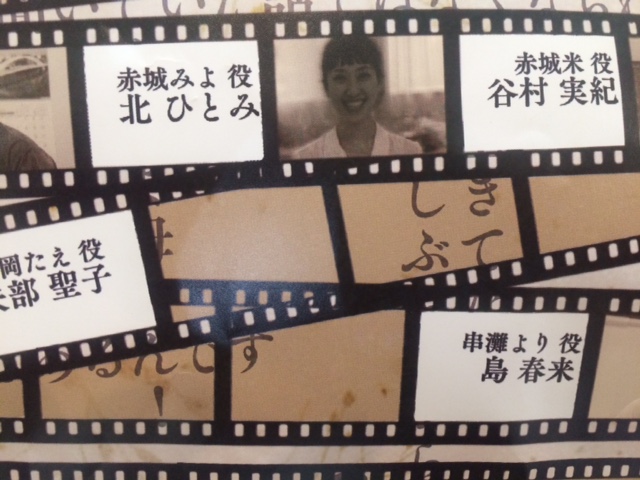 赤城みよ 役
北 ひとみ
赤城米 役
谷村 実紀
きて
しぶ
岡たえ 役
部 聖子
串灘より 役
島 春来
るんです
！